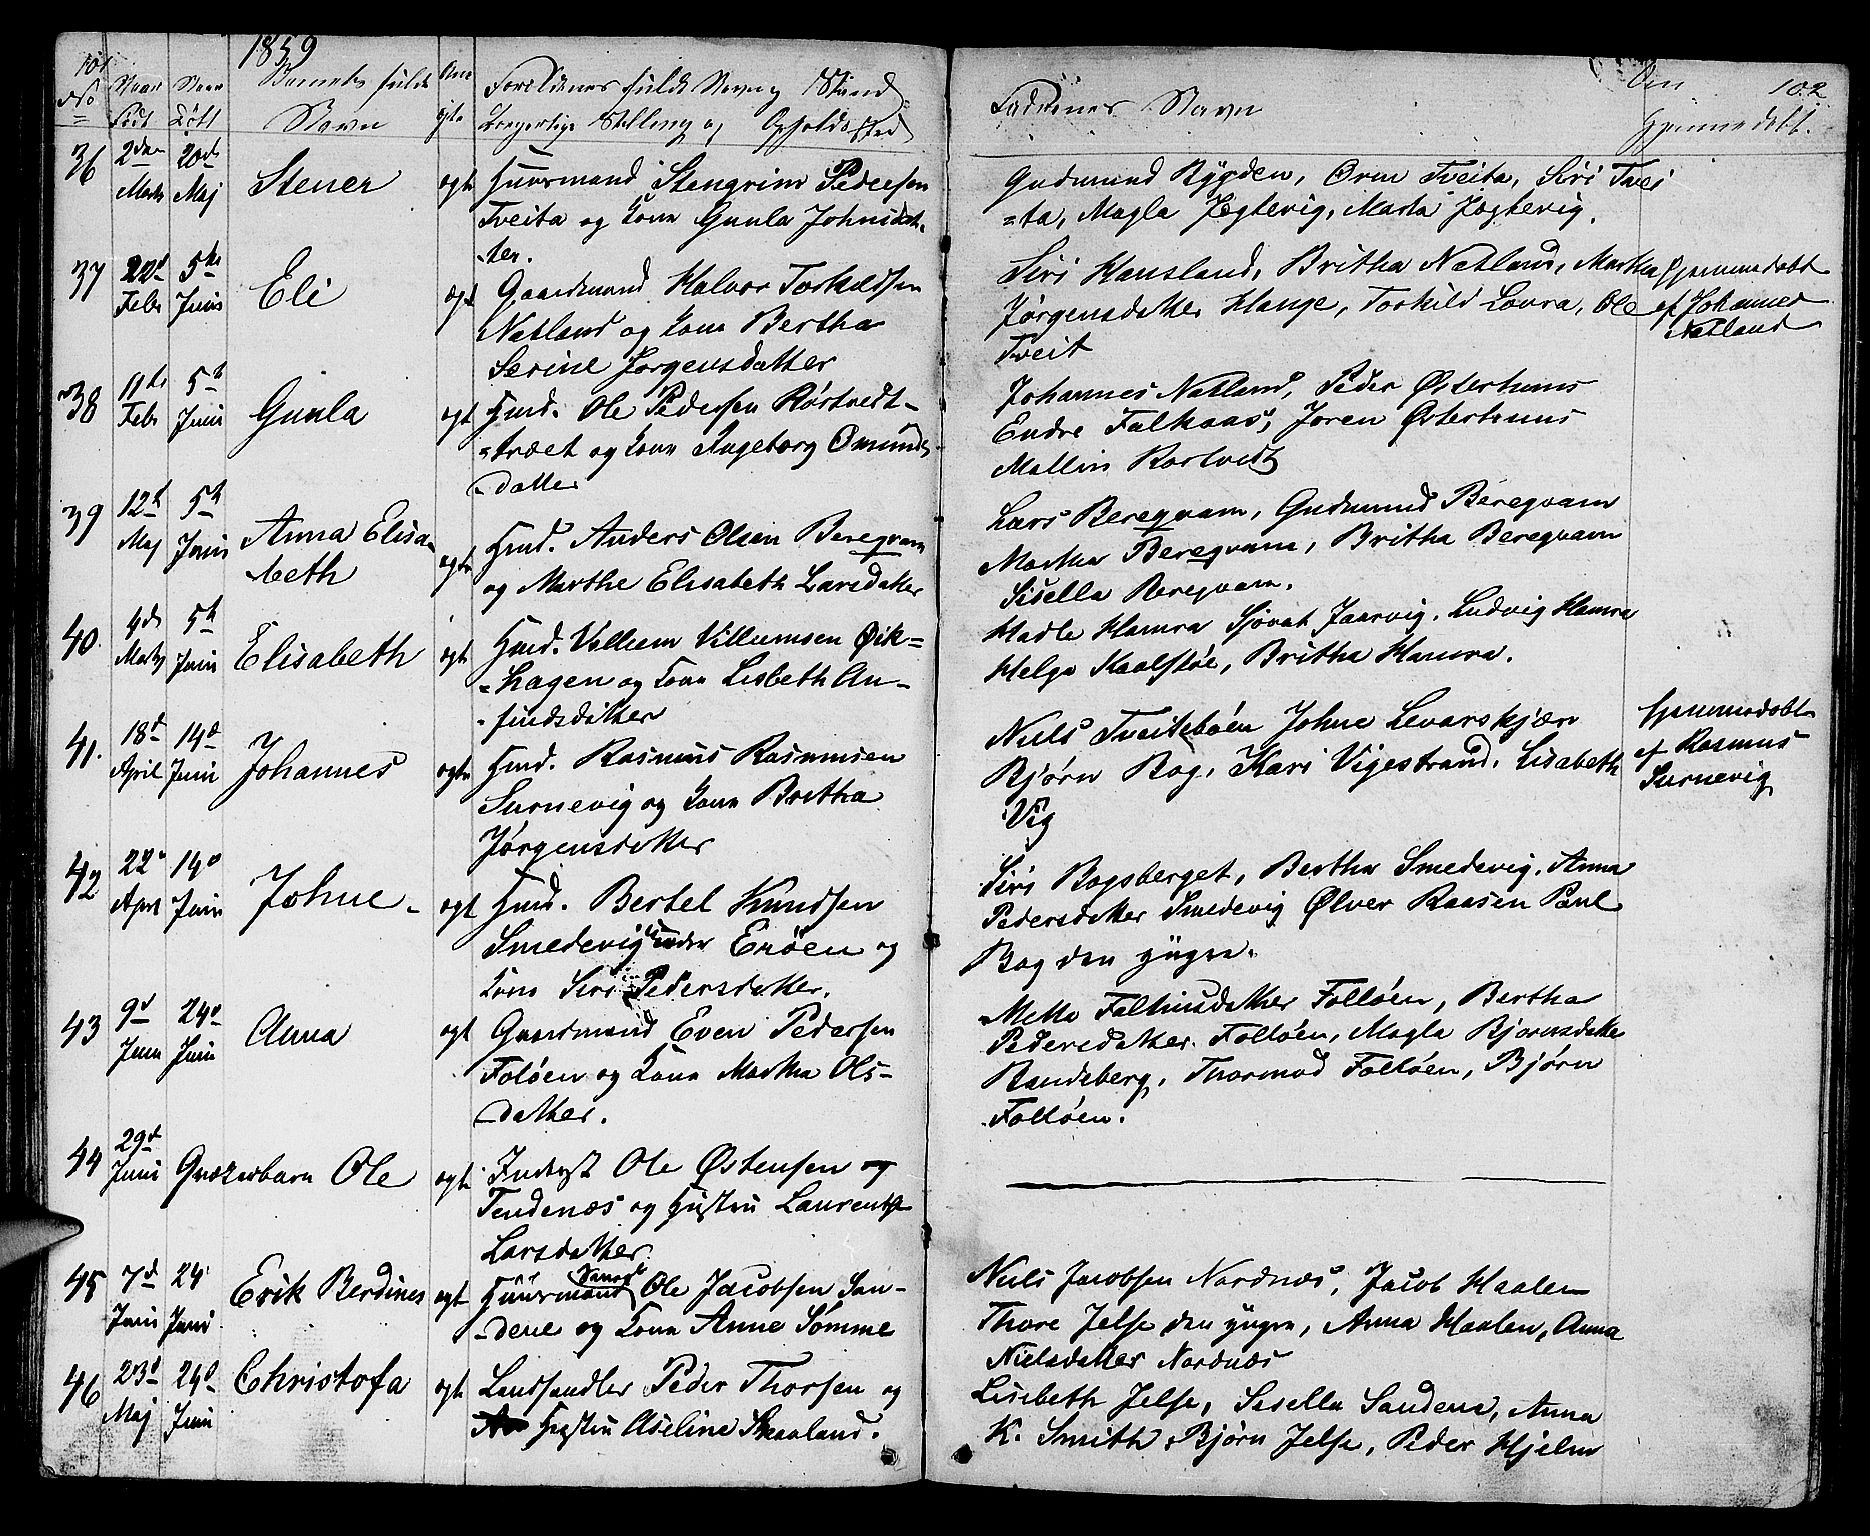 1859
101
No
Naar
Født
Naar
Døbt
Barnets fulde
Navn
Om
ægte
Foreldrenes fulde Navn, Stand
borgerlige Stilling og Opholdssted
36
2den
Marts
20de
Maj
Stener
ægte
Huusmand Stengrim Pedersen
Tveita og Kone Gunla Johnsdat-
-ter.
37
22d
Febr
5te
Juni
Eli
ægt
Gaardmand Halvor Torkildsen
Natland og Kone Bertha
Serine Jørgensdatter
38
11te
Febr
5te
Juni
Gunla
ægt
Hmd. Ole Pedersen Røstvedt-
-træet og Kone Ingeborg Omunds-
-datter
39
12t
Maj
5t
Juni
Anna Elisa-
beth
ægte
Hmd. Anders Olsen Beregvam
og Marthe Elisabeth Larsdatter
40.
4de
Marts
5t
Juni
Elisabeth
ægt
Hmd. Vellum Villumsen Øik-
-hagen og Kone Lisbeth An-
-findsdatter
41.
18d
April
14d
Juni
Johannes
ægte
Hmd. Rasmus Rasmussen
Surnevig og Kone Britha
Jørgensdatter
42
22
April
14d
Juni
Johne
ægt
Hmd. Bertel Knudsen
Smedevig under Erøen og
Kone Siri Pedersdatter.
43
9d
Juni
24d
Juni
Anna
ægt
Gaardmand Even Pedersen
Foløen og Kone Martha Ols-
-datter.
44
29d
Juni
Ole
ægte
Inderst Ole Østensen og
Tendenæs og Hustru Laurentse
Larsdatter
45
7d
Juni
24
Juni
Erik Berdines
ægt
Huusmand Ole Jacobsen San-
-dene og Kone Anne Sømme
46
23d
Maj
24d
Juni
Christofa
ægte
Landhandler Peder Thorsen og
Hustru Aseline Skaaland.
Faddernes Navn
Om
Hjemmedøbt.
102
Gudmund Bygden, Orm Tveita, Siri Tvei
-ta, Magla Jøgtevig, Marta Jøgtevig.
Siri Hausland, Britha Natland, Martha
Jørgensdatter Hauge, Torkild Lovra, Ole
Tveit
Hjemmedøbt
af Johannes
Natland
Johannes Natland, Peder Østerhuus
Endre Falkaas, Joren Østerhuus
Mallin Rostvedt
Lars Beregvam, Gudmund Beregvam
Martha Beregvam, Britha Beregvam
Sisella Beregvam.
Hadle Hamra Sjovat Jaarvig, Ludvig Hamra
Helga Kaalstøe, Britha Hamra.
Niels Tveitebøen Johne Levarskjær
Bjørn Bog, Kari Vigestrand, Lisabeth
Vig
Hjemmedøbt
af Rasmus
Surnevig
Siri Bogsberget, Bertha Smedevig, Anna
Pedersdatter Smedevig Ølver Raasen Paul
Bog den yngre.
Mette Falkinsdatter Folløen, Bertha
Pedersdatter Folløen, Magla Bjornsdatter
Bandeberg, Thormod Folløen, Bjørn
Folløen.
Niels Jacobsen Nordnæs, Jacob Haalen
Thore Jelse den yngre, Anna Haalen, Anna
Nielsdatter Nordnæs
Lisebeth Jelse, Sesella Sandene, Anna
K. Smith, Bjørn Jelse, Peder Hjelm